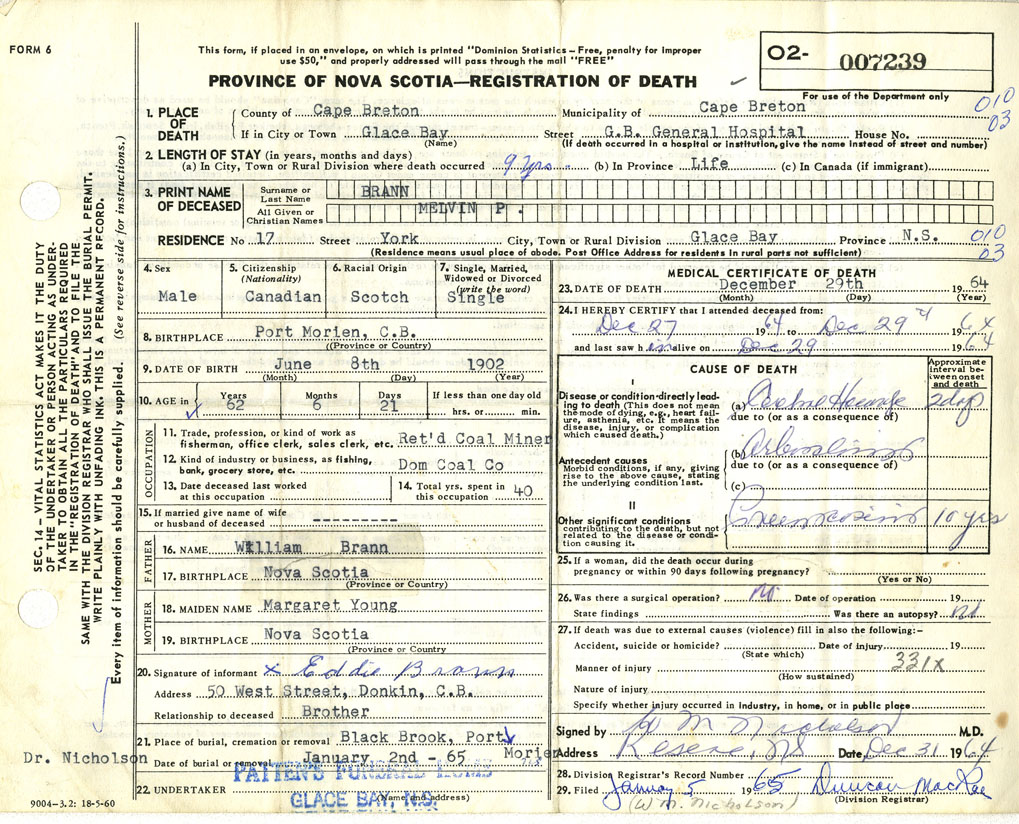 FORM 6
This form, if placed in an envelope, on which is printed "Dominion Statistics – Free, penalty for improper
use $50," and properly addressed will pass through the mail "FREE"
PROVINCE OF NOVA SCOTIA—REGISTRATION OF DEATH
O2- 007239
For use of the Department only
010
03
1. PLACE OF DEATH
County of Cape Breton Municipality of Cape Breton
If in City or Town Glace Bay Street G.B. General Hospital House No.
(Name) (If death occurred in a hospital or institution, give the name instead of street and number)
2. LENGTH OF STAY (in years, months and days)
(a) In City, Town or Rural Division where death occurred 9 yrs (b) In Province Life (c) In Canada (if immigrant)
3. PRINT NAME OF DECEASED
Surname or Last Name BRANN
All Given or Christian Names MELVIN P.
RESIDENCE No 17 Street York City, Town or Rural Division Glace Bay Province N.S. 010
03
(Residence means usual place of abode. Post Office Address for residents in rural parts not sufficient)
4. Sex
Male
5. Citizenship
(Nationality)
Canadian
6. Racial Origin
Scotch
7. Single, Married,
Widowed or Divorced
(write the word)
Single
8. BIRTHPLACE Port Morien, C.B.
((Province or Country)
9. DATE OF BIRTH June 8th 1902
(Month) (Day) (Year)
10. AGE in Years Months Days If less than one day old
62 6 21 hrs. or min.
OCCUPATION
11. Trade, profession, or kind of work as
fisherman, office clerk, sales clerk, etc. Ret'd Coal Miner
12. Kind of industry or business, as fishing,
bank, grocery store, etc. Dom Coal Co
13. Date deceased last worked
at this occupation
14. Total yrs. spent in
this occupation 40
15. If married give name of wife
or husband of deceased ---------
FATHER
16. NAME William Brann
17. BIRTHPLACE Nova Scotia
(Province or Country)
MOTHER
18. MAIDEN NAME Margaret Young
19. BIRTHPLACE Nova Scotia
(Province or Country
20. Signature of informant x Eddie Brann
Address 50 West Street, Donkin, C.B.
Relationship to deceased Brother
21. Place of burial, cremation or removal Black Brook, Port Morien
Date of burial or removal January 2nd - 65
22. UNDERTAKER PATTEN'S FUNERAL HOME
GLACE BAY, N.S.
(Name and address)
MEDICAL CERTIFICATE OF DEATH
23. DATE OF DEATH December 29th 1964
(Month) (Day) (Year)
24. I HEREBY CERTIFY that I attended deceased from:
Dec 27 1964 to Dec 29 1964
and last saw him alive on Dec 29 1964
CAUSE OF DEATH
Approximate
interval be-
tween onset
and death
I
Disease or condition directly lead-
ing to death (This does not mean
the mode of dying, e.g., heart fail-
ure, asthenia, etc. It means the
disease, injury, or complication
which caused death.)
(a) 2 days
due to (or as a consequence of)
Antecedent causes
Morbid conditions, if any, giving
rise to the above cause, stating
the underlying condition last.
(b)
due to (or as a consequence of)
(c)
II
Other significant conditions
contributing to the death, but not
related to the disease or condi-
tion causing it.
10 yrs
25. If a woman, did the death occur during
pregnancy or within 90 days following pregnancy?
(Yes or No)
26. Was there a surgical operation? No Date of operation 19
State findings Was there an autopsy? No
27. If death was due to external causes (violence) fill in also the following:–
Accident, suicide or homicide? Date of injury 19
(State which)
Manner of injury 331x
(How sustained)
Nature of injury
Specify whether injury occurred in industry, in home, or in public place
Signed by W M Nicholson M.D.
Address Reserve, NS Date Dec 31 1964
28. Division Registrar's Record Number
29. Filed January 5 1965 Duncan MacRae
(W. M. Nicholson) (Division Registrar)
Dr. Nicholson
9004-3.2: 18-5-60
SEC. 14 – VITAL STATISTICS ACT MAKES IT THE DUTY
OF THE UNDERTAKER OR PERSON ACTING AS UNDER-
TAKER TO OBTAIN ALL THE PARTICULARS REQUIRED
IN THE "REGISTRATION OF DEATH" AND TO FILE THE
SAME WITH THE DIVISION REGISTRAR WHO SHALL ISSUE THE BURIAL PERMIT.
WRITE PLAINLY WITH UNFADING INK. THIS IS A PERMANENT RECORD.
Every item of information should be carefully supplied. (See reverse side for instructions.)